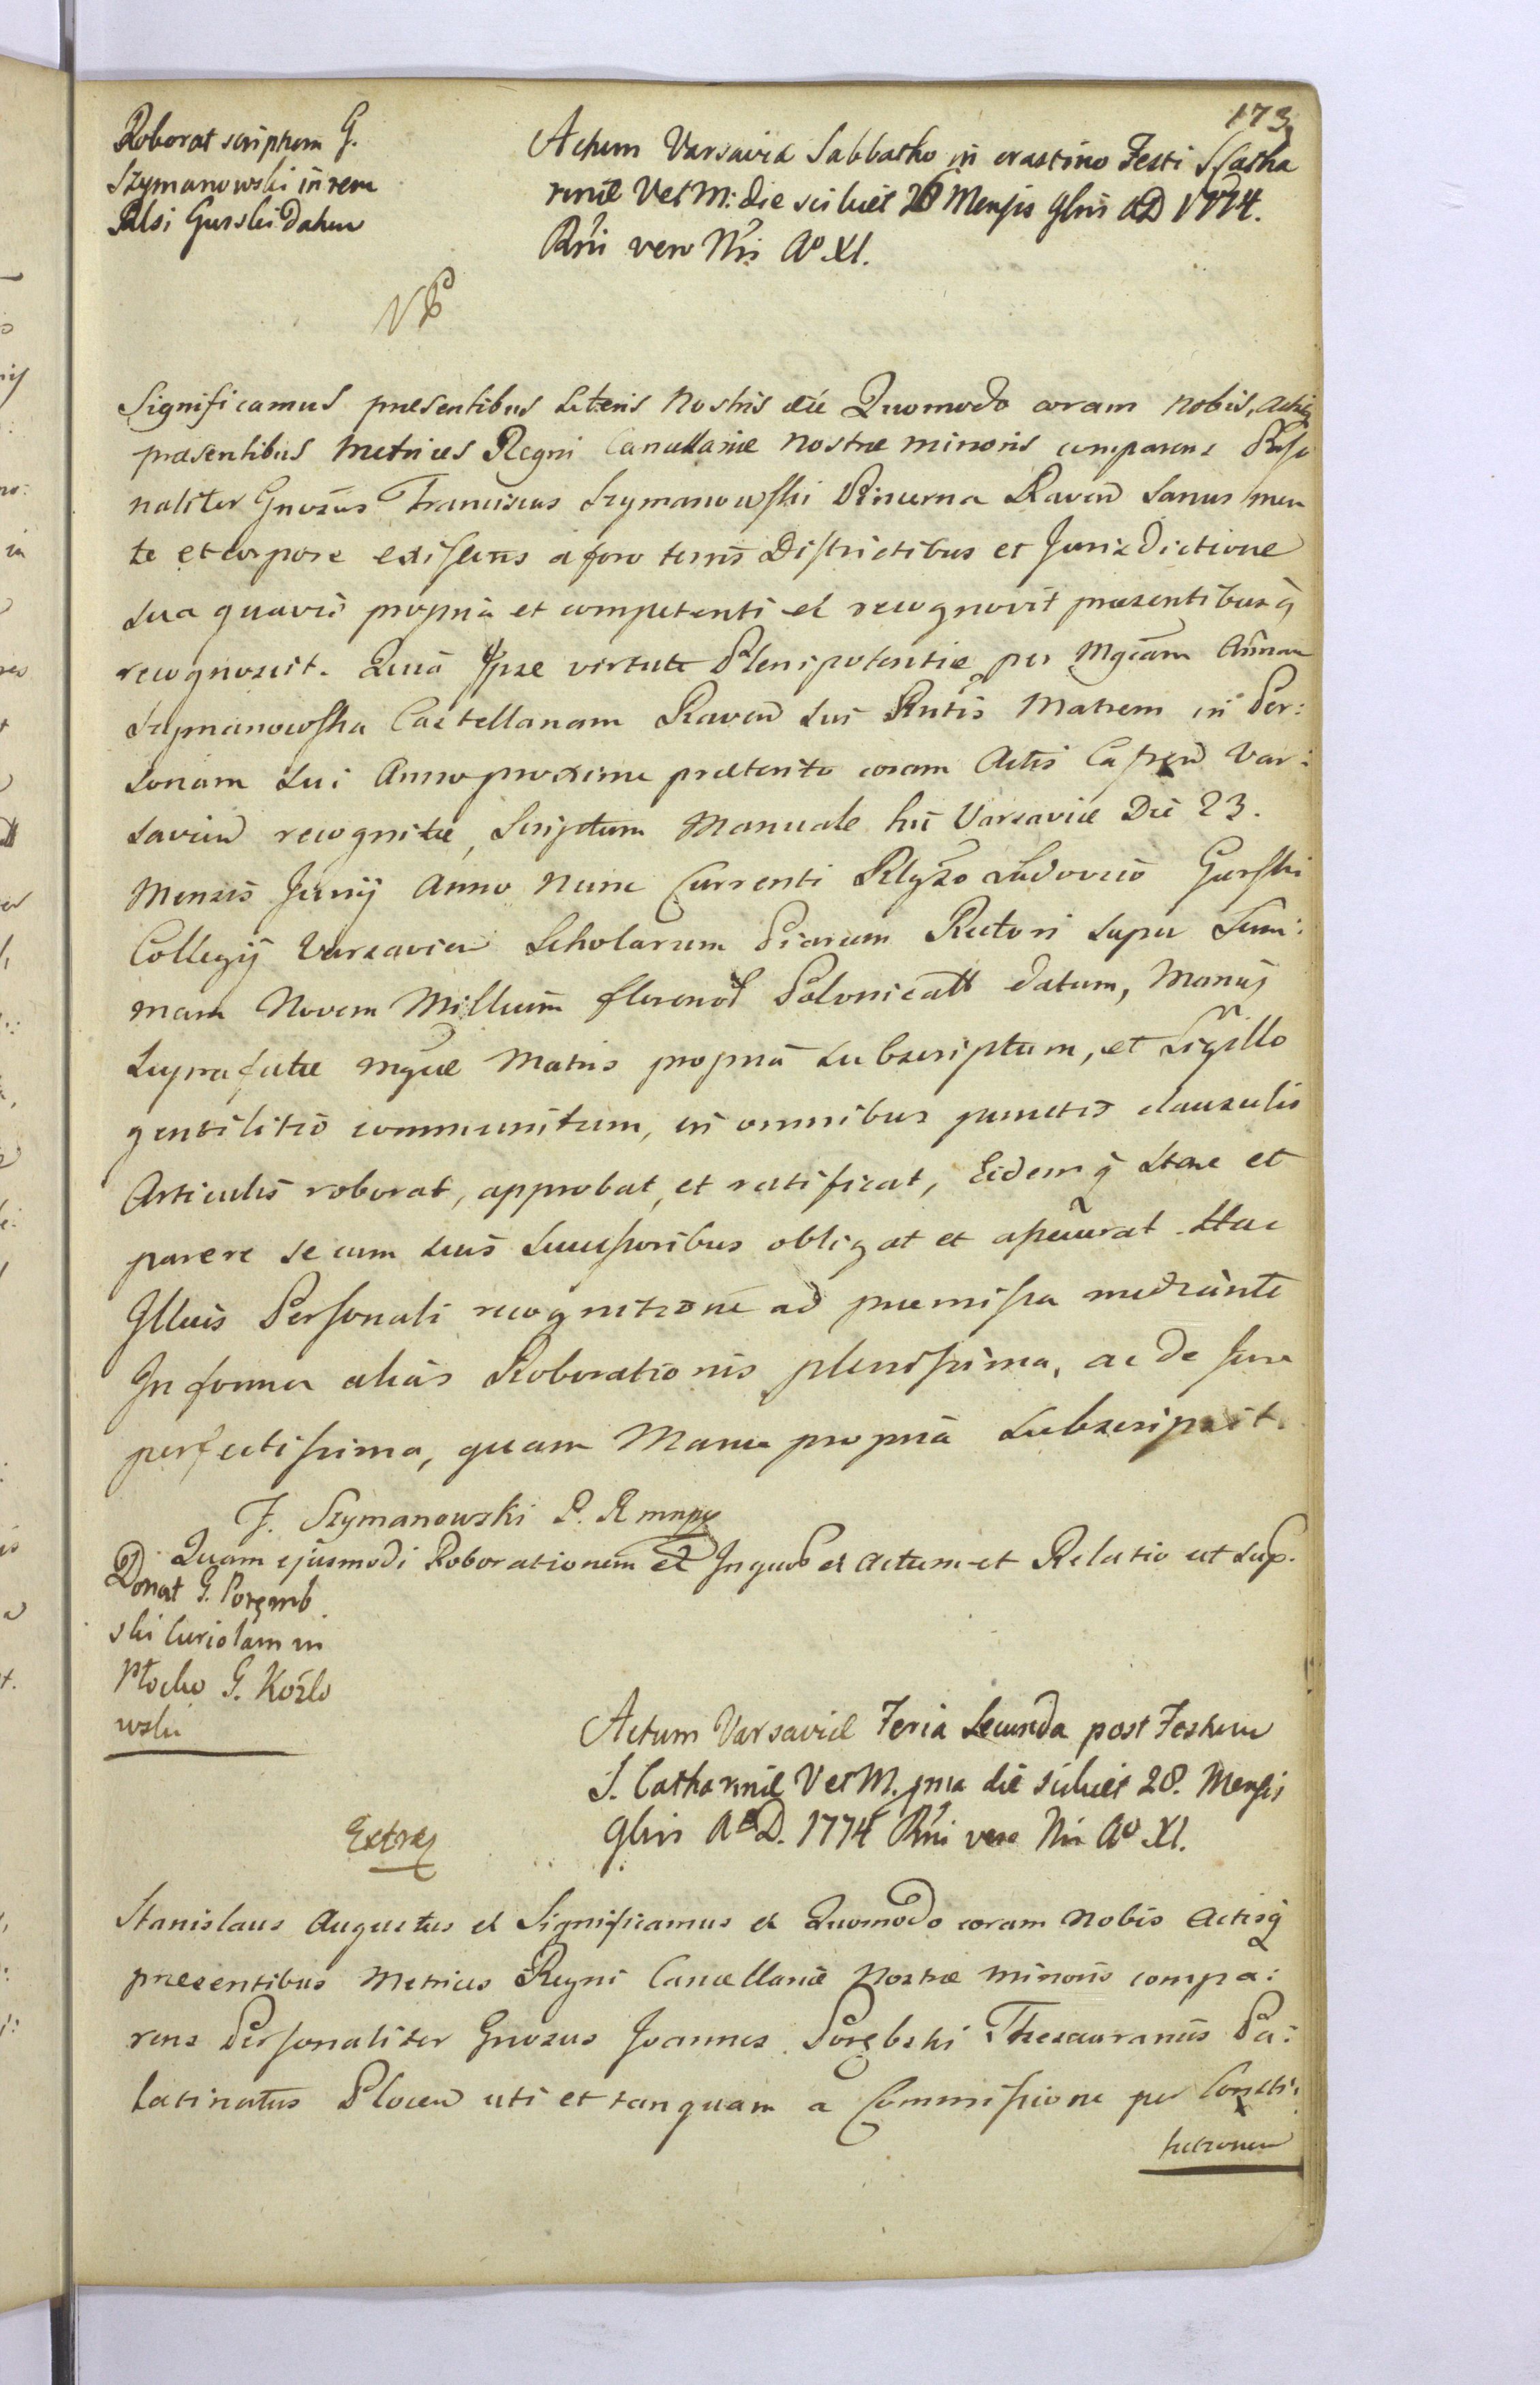 173
Roborat scriptum G.
Szymanowski in rem
Rlsi Gurski Datum
Actum Varsaviæ Sabbatho in crastino Festi S Catha
rinæ V et M: die scilicet 26 Mensis 9bris AD 1774.
Rni vero Nri Ao XI.
NB
Significamus præsentibus Literis Nostris etc Quomodo coram nobis, Actisq
præsentibus Metrices Regni Cancellariæ Nostræ minoris comparens Perso
naliter Gnosus Franciscus Szymanowski Pincerna Raven Sanus men
te et corpore existens a foro terris Districtibus et Jurisdictione
Sua quavis propria et competenti et recognovit præsentibusq
recognoscit. Quia Ipse virtute Plenipotentiæ per Mgcam Annam
Szymanowska Castellanam Raven Sui Rntis Matrem in Per:
sonam Sui Anno proxime præterito coram Actis Castren Var:
savien recognitæ, Scriptum Manuale hic Varsaviæ Die 23.
Mensis Junij Anno Nunc Currenti Rlgso Ludovico Gurski
Collegij Varsavien Scholarum Piarum Rectori super Sum:
mam Novem Millium florenos Polonicall datum, Manuq
Suprafatæ Mgcæ Matris propria Subscriptum, et Sigillo
gentilitio communitum, in omnibus punctis clausulis
Articulis roborat, approbat, et ratificat, Eidemq Stare et
parere se cum suis Successoribus obligat et assecurat Hac
Illius Personali recognitione ad præmissa mediante
In forma alias Roborationis plenissima, ac de Jure
perfectissima, quam Manu propria Subscripsit.
F. Szymanowski P. R mnpp
Quam ejusmodi Roborationem et In quor et Actum et Relatio ut Sup.
Donat G. Poręmb
ski Curiolam in
Płocko G. Kozło
wski
Actum Varsaviæ Feria Secunda post Festum
S. Catharinæ V et M. pma die scilicet 28. Mensis
9bris A D. 1774 Rni vero Nri Ao XI.
Extra
Stanislaus Augustus et Significamus et Quomodo coram Nobis Actisq
præsentibus Metrices Regni Cancellariæ Nostræ Minoris compa:
rens Personaliter Gnosus Joannes Porębski Thesaurarius Pa:
latinatus Plocen uti et tanquam a Commissione per Consti:
tutionem